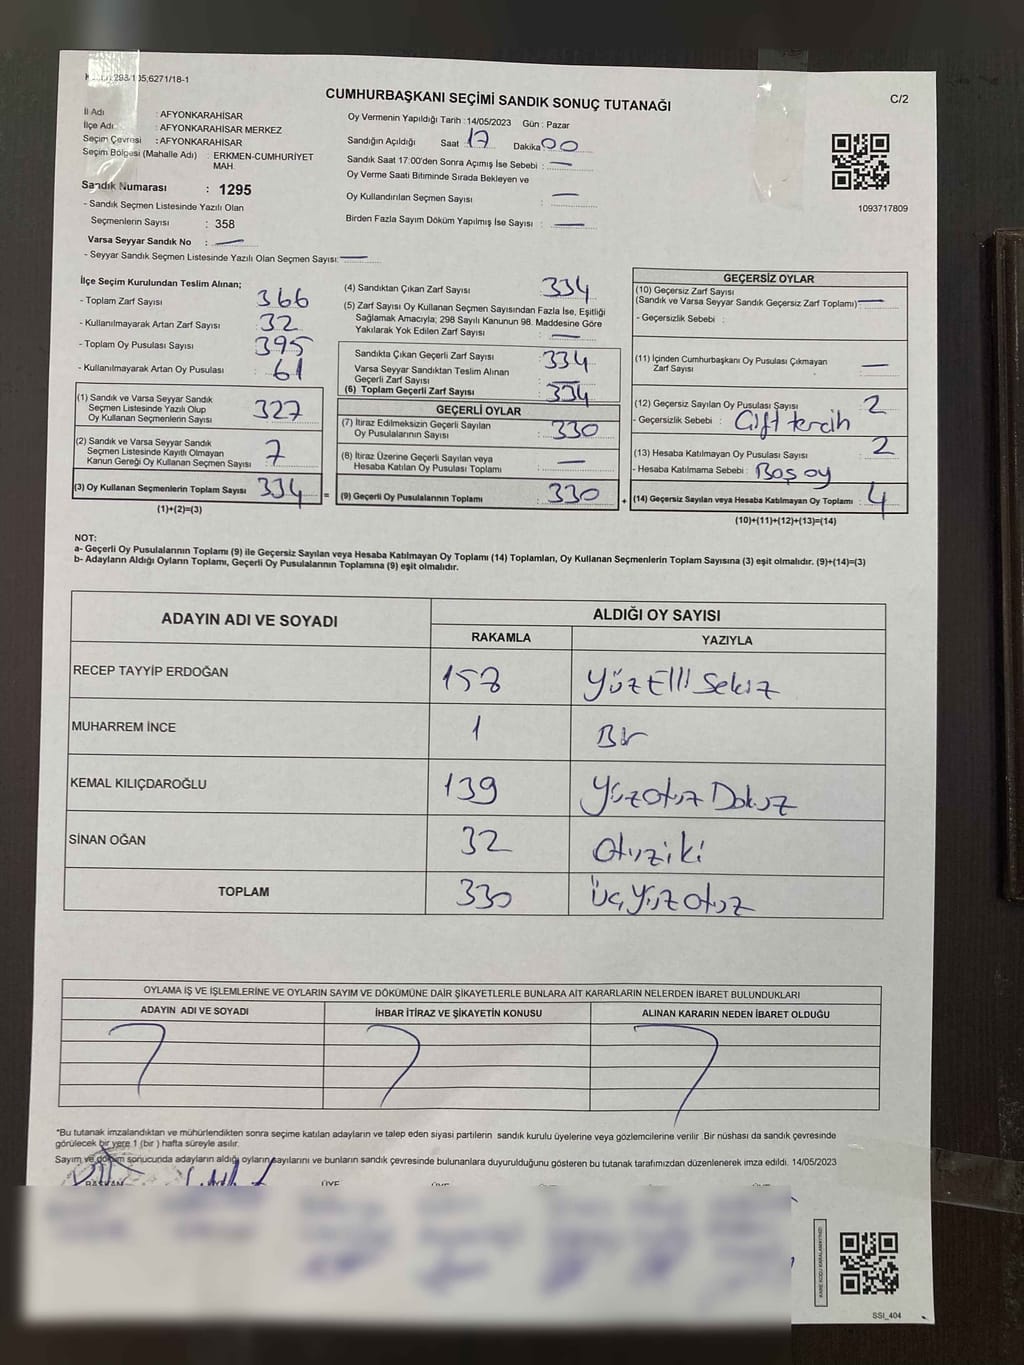 CUMHURBAŞKANI SEÇİMİ SANDIK SONUÇ TUTANAĞI
C/2
İl Adı : AFYONKARAHİSAR
İlçe Adı : AFYONKARAHİSAR MERKEZ
Seçim Çevresi : AFYONKARAHİSAR
Seçim Bölgesi (Mahalle Adı) : ERKMEN-CUMHURİYET MAH.
Sandık Numarası : 1295
- Sandık Seçmen Listesinde Yazılı Olan
Seçmenlerin Sayısı : 358
Varsa Seyyar Sandık No : —
- Seyyar Sandık Seçmen Listesinde Yazılı Olan Seçmen Sayısı: —
Oy Vermenin Yapıldığı Tarih : 14/05/2023 Gün : Pazar
Sandığın Açıldığı Saat 17 Dakika 00
Sandık Saat 17:00'den Sonra Açımış İse Sebebi : —
Oy Verme Saati Bitiminde Sırada Bekleyen ve
Oy Kullandırılan Seçmen Sayısı : —
Birden Fazla Sayım Döküm Yapılmış İse Sayısı : —
1093717809
İlçe Seçim Kurulundan Teslim Alınan;
- Toplam Zarf Sayısı 366
- Kullanılmayarak Artan Zarf Sayısı : 32
- Toplam Oy Pusulası Sayısı 395
- Kullanılmayarak Artan Oy Pusulası : 61
(1) Sandık ve Varsa Seyyar Sandık
Seçmen Listesinde Yazılı Olup
Oy Kullanan Seçmenlerin Sayısı : 327
(2) Sandık ve Varsa Seyyar Sandık
Seçmen Listesinde Kayıtlı Olmayan
Kanun Gereği Oy Kullanan Seçmen Sayısı : 7
(3) Oy Kullanan Seçmenlerin Toplam Sayısı : 334
(1)+(2)=(3)
(4) Sandıktan Çıkan Zarf Sayısı : 334
(5) Zarf Sayısı Oy Kullanan Seçmen Sayısından Fazla İse, Eşitliği
Sağlamak Amacıyla; 298 Sayılı Kanunun 98. Maddesine Göre
Yakılarak Yok Edilen Zarf Sayısı : —
Sandıkta Çıkan Geçerli Zarf Sayısı : 334
Varsa Seyyar Sandıktan Teslim Alınan
Geçerli Zarf Sayısı : —
(6) Toplam Geçerli Zarf Sayısı : 334
GEÇERLİ OYLAR
(7) İtiraz Edilmeksizin Geçerli Sayılan
Oy Pusulalarının Sayısı : 330
(8) İtiraz Üzerine Geçerli Sayılan veya
Hesaba Katılan Oy Pusulası Toplamı : —
= (9) Geçerli Oy Pusulalarının Toplamı : 330 +
GEÇERSİZ OYLAR
(10) Geçersiz Zarf Sayısı
(Sandık ve Varsa Seyyar Sandık Geçersiz Zarf Toplamı) : —
- Geçersizlik Sebebi :
(11) İçinden Cumhurbaşkanı Oy Pusulası Çıkmayan
Zarf Sayısı : —
(12) Geçersiz Sayılan Oy Pusulası Sayısı : 2
- Geçersizlik Sebebi : Çift tercih
(13) Hesaba Katılmayan Oy Pusulası Sayısı : 2
- Hesaba Katılmama Sebebi : Boş oy
(14) Geçersiz Sayılan veya Hesaba Katılmayan Oy Toplamı : 4
(10)+(11)+(12)+(13)=(14)
NOT:
a- Geçerli Oy Pusulalarının Toplamı (9) ile Geçersiz Sayılan veya Hesaba Katılmayan Oy Toplamı (14) Toplamları, Oy Kullanan Seçmenlerin Toplam Sayısına (3) eşit olmalıdır. (9)+(14)=(3)
b- Adayların Aldığı Oyların Toplamı, Geçerli Oy Pusulalarının Toplamına (9) eşit olmalıdır.
ADAYIN ADI VE SOYADI ALDIĞI OY SAYISI
RAKAMLA YAZIYLA
RECEP TAYYİP ERDOĞAN 158 Yüz Elli Sekiz
MUHARREM İNCE 1 Bir
KEMAL KILIÇDAROĞLU 139 Yüz otuz Dokuz
SİNAN OĞAN 32 Otuz iki
TOPLAM 330 Üç Yüz otuz
OYLAMA İŞ VE İŞLEMLERİNE VE OYLARIN SAYIM VE DÖKÜMÜNE DAİR ŞİKAYETLERLE BUNLARA AİT KARARLARIN NELERDEN İBARET BULUNDUKLARI
ADAYIN ADI VE SOYADI İHBAR İTİRAZ VE ŞİKAYETİN KONUSU ALINAN KARARIN NEDEN İBARET OLDUĞU
*Bu tutanak imzalandıktan ve mühürlendikten sonra seçime katılan adayların ve talep eden siyasi partilerin sandık kurulu üyelerine veya gözlemcilerine verilir. Bir nüshası da sandık çevresinde
görülecek bir yere 1 (bir ) hafta süreyle asılır.
Sayım ve döküm sonucunda adayların aldığı oyların sayılarını ve bunların sandık çevresinde bulunanlara duyurulduğunu gösteren bu tutanak tarafımızdan düzenlenerek imza edildi. 14/05/2023
BAŞKAN ÜYE
SSI_404